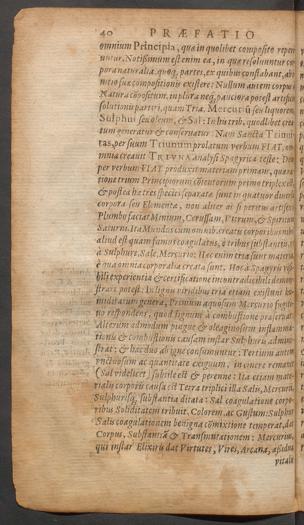 40 PRÆFATIO
omnium Principia, qua in quolibet composito reperi
untur. Notissimum est enim ea, in qua resoluuntur cor
pora naturalia. quoq; partes, ex quibus constabant, ab i
nitio sua compositionis existere: Nullum autem corpus
Natura cōpositum, in plura neq; pauciora potest artificio
solutioni partiri, quam Tria. Mercuriū seu liquorem,
Sulphur seu oleum, & Sal: In his tribus quodlibet crea
tum generatur & conseruatur. Nam Sancta Trinni
tas, per suum Triunum prolatum verbum FIAT, om
nia creauit TRIVNA analysi Spagyrica teste: Deus
per verbum FIAT produxit materiam primam, qua ra
tione trium Principiorum cōtentorum primò triplex est,
& postea ha tres species separata sunt in quatuor diuersa
corpora seu Elementa. non aliter ac si peritus artifex
Plumbo faciat Minium, Cerussam, Vitrum, & Spiritum
Saturni. Ita Mundus cum omnib. creatis corporibus nihil
aliud est quam fumus coagulatus, à tribus substantiis,
à Sulphure, Sale, Mercurio: Hæc enim tria sunt materia
è qua omnia corporalia creata sunt. Hoc à Spagyro visi
bili experientia & certificatione incontradicibili demon
strari potest. In ligno viridi bus tria etiam existunt hu
miditatum genera, Primum aquosum Mercurio
respondens, quod lignum à combustione præseruat.
Alterum admodum pingue & oleaginosum inflamma
tionis & combustionis causam instar Sulphuris admini
strat: & hæc duo ab igne consumuntur: Tertium autem
quantitate exiguum, in cinere remanet
(Sal videlicet) subtile est & perenne: Ita etiam mate
rialis corporis causa est Terra triplici illa Salis, Mercurii,
Sulphurisq; substantia ditata: Sal coagulatione corpo
ribus Soliditatem tribuit. Colorem, ac Gustum: Sulphur
Salis coagulationem benigna cōmixtione temperat, dat
Corpus, Substantiā & Transmutationem: Mercurius,
qui instar Elixiris dat Virtutes, Vires, Arcana,
vitalis